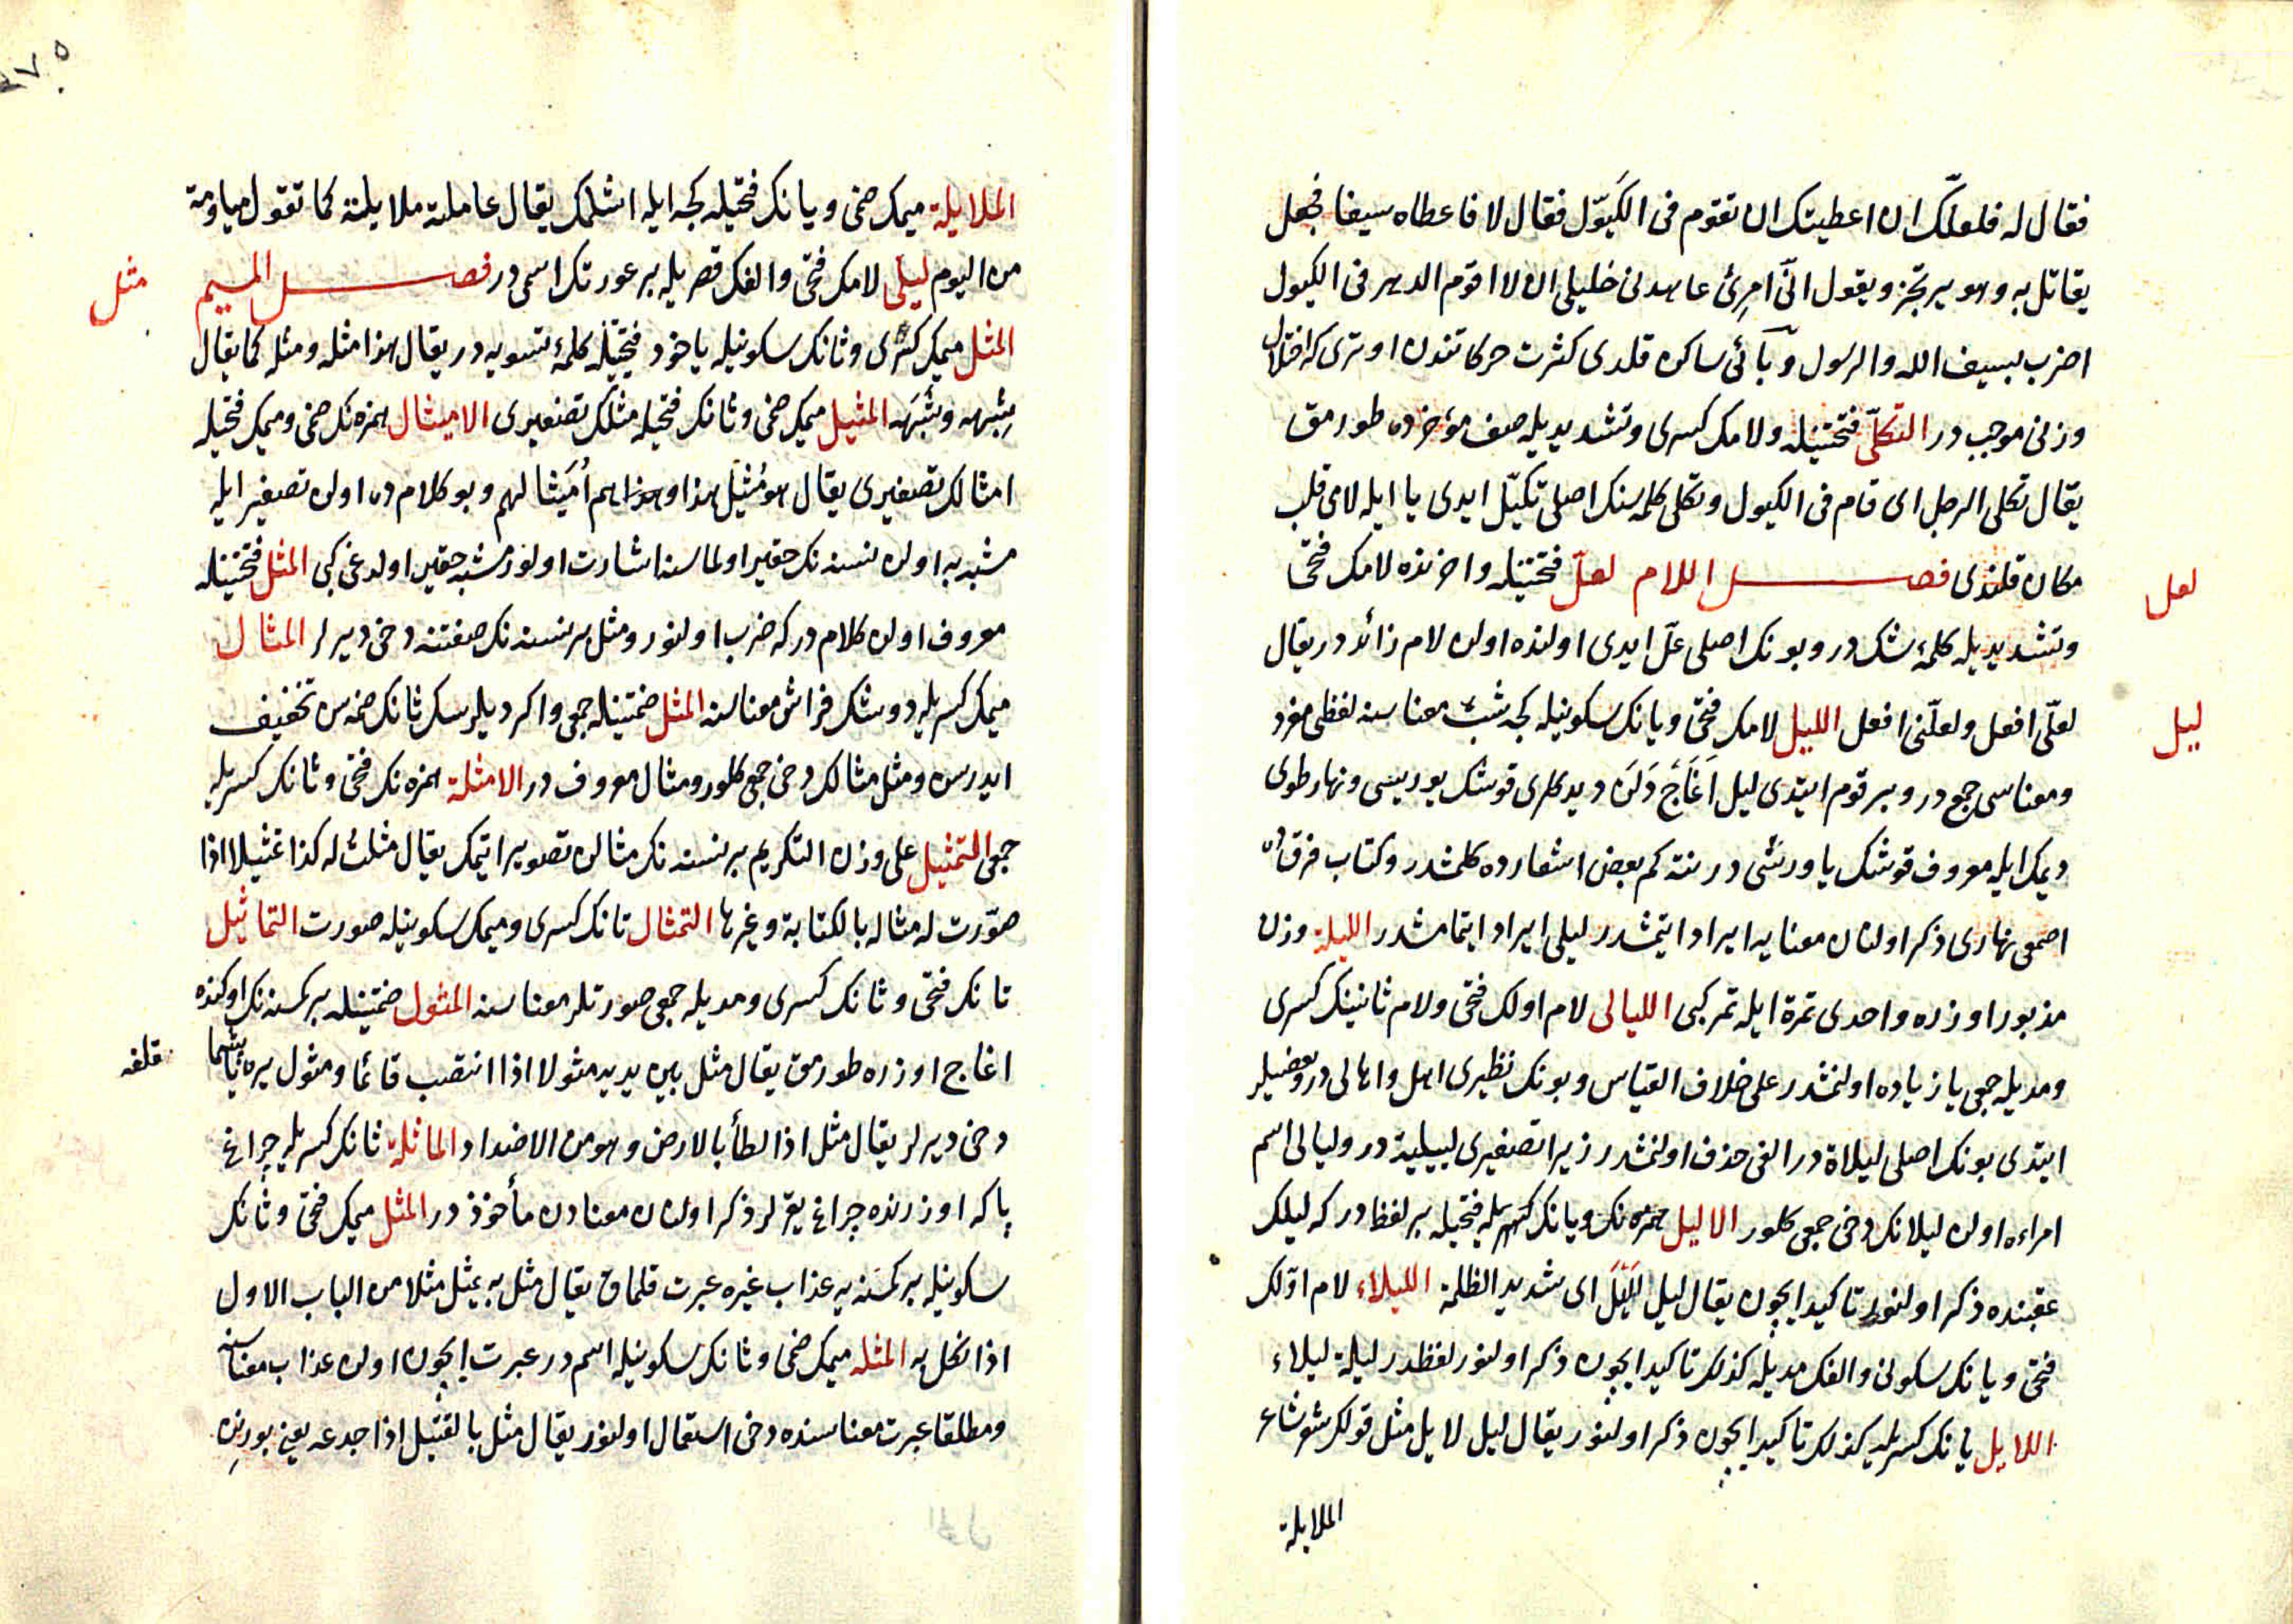 فقال له فلعلّك ان اعطيتك ان تقوم فى الكَيّول فقال لا فاعطاه سيفا فجعل
يقاتل به وهو يرتجز ويقول انّى امرئ عاهدنى خليلى ان لا اقوم الدهر فى الكيول
اضرب بسيف الله والرسول وبائى ساكن قلدى كثرت حركاتدن اوترى كه اختلال
وزنى موجب در التكلّى فتحتينله ولامك كسرى وتشديديله صف مؤخرده طورمق
يقال تكلى الرجل اى قام فى الكيول وتكلى كلمه سنك اصلى تكيّل ايدى يا ايله لامى قلب
مكان قلندى فصل اللام لعلّ فتحتينله واخرنده لامك فتحى
لعل
وتشديديله كلمۀ شك در وبونك اصلى علّ ايدى اولنده اولن لام زائد در يقال
لعلّى افعل ولعلّنى افعل الليل لامك فتحى ويانك سكونيله كجه شب معناسنه لفظى مفرد
ليل
ومعناسى جمع در وبر قوم ايتدى ليل اَغَاجْ دَلَن ديدكلرى قوشك يوريسى ونهار طوى
ديمك ايله معروف قوشك ياوريسى در نته كم بعض اشعارده كلمشدر وكتاب فرقده
اصمعى نهارى ذكر اولنان معنايه ايراد ايتمشدر ليلى ايراد ايتمامشدر الليلة وزن
مذبور اوزره واحدى تمرة ايله تمر كبى الليالى لام اولك فتحى ولام ثانينك كسرى
ومديله جمعى يا زياده اولنمشدر على خلاف القياس وبونك نظيرى اهل واهالى در وبعضيلر
ايتدى بونك اصلى ليلاة در الفى حذف اولنمشدر زيرا تصغيرى لييلية در وليالى اسم
امراءه اولن ليلانك دخى جمعى كلور الاليل همزه نك ويانك فتحيله بر لفظدر كه ليلك
عقبنده ذكر اولنور تاكيد ايچون يقال ليل اَلْيَل اى شديد الظلمة الليلاء لام اوّلك
فتحى ويانك سكونى والفك مديله كذلك تاكيد ايچون ذكر اولنور لفظدر ليلة ليلاء
اللايل يانك كسريله كذلك تاكيد ايچون ذكر اولنور يقال ليل لايل مثل قولك شعر شاعر
الملايلة
الملايلة ميمك ضمى ويانك فتحيله كجه ايله اشلمك يقال عاملته ملايلة كما تقول مياومة
من اليوم ليلى لامك فتحى والفك قصريله بر عورتك اسمى در فصل الميم
مثل
المثل ميمك كسرى وثانك سكونيله ياخود فتحتينله كلمۀ تسويه در يقال هذا مثله ومثله كما يقال
شِبهه وشَبَهه المثيل ميمك ضمى وثانك فتحيله مثلك تصغيرى الاميثال همزه نك ضمى وميمك فتحيله
امثالك تصغيرى يقال هو مُثيل هذا وهم اُمَيثالهم وبو كلامده اولن تصغير ايله
مشبه به اولن نسنه نك حقير اولماسنه اشارت اولنور مشبه حقير اولدغى كبى المثل فتحتينله
معروف اولن كلام در كه ضرب اولنور ومثل بر نسنه نك صفتنه دخى ديرلر المثال
ميمك كسريله دوشك فراش معناسنه المثل ضمتينله جمعى واكر ديلرسك ثانك ضمه سن تخفيف
ايدرسن ومثل مثالك دخى جمعى كلور ومثال معروف در الامثلة همزه نك فتحى وثانك كسريله
جمعى التمثيل على وزن التكريم بر نسنه نك مثالن تصوير ايتمك يقال مثلت له كذا تمثيلا اذا
صوّرت له مثاله بالكتابة وغيرها التمثال تانك كسرى وميمك سكونيله صورت التماثيل
تانك فتحى وثانك كسرى ومديله جمعى صورتلر معناسنه المثول ضمتينله بر كمسنه نك اوكنده
اغاج اوزره طورمق يقال مثل بين يديه مثولا اذا انتصب قائما ومثول يره يابشمغا
قلغه
دخى ديرلر يقال مثل اذا لطأ بالارض وهو من الاضداد الماثلة ثانك كسريله چراغ
پا كه اوزرنده چراغ يقرلر ذكر اولنان معنادن مأخوذ در المثل ميمك فتحى وثانك
سكونيله بر كمسنه يه عذاب غيره عبرت قلماق يقال مثل به يمثل مثلا من الباب الاول
اذا نكل به المثله ميمك ضمى وثانك سكونيله اسم در عبرت ايچون اولن عذاب معناسنه
ومطلقا عبرت معناسنده دخى استعمال اولنور يقال مثل بالقتيل اذا جدعه يعنى بورنن